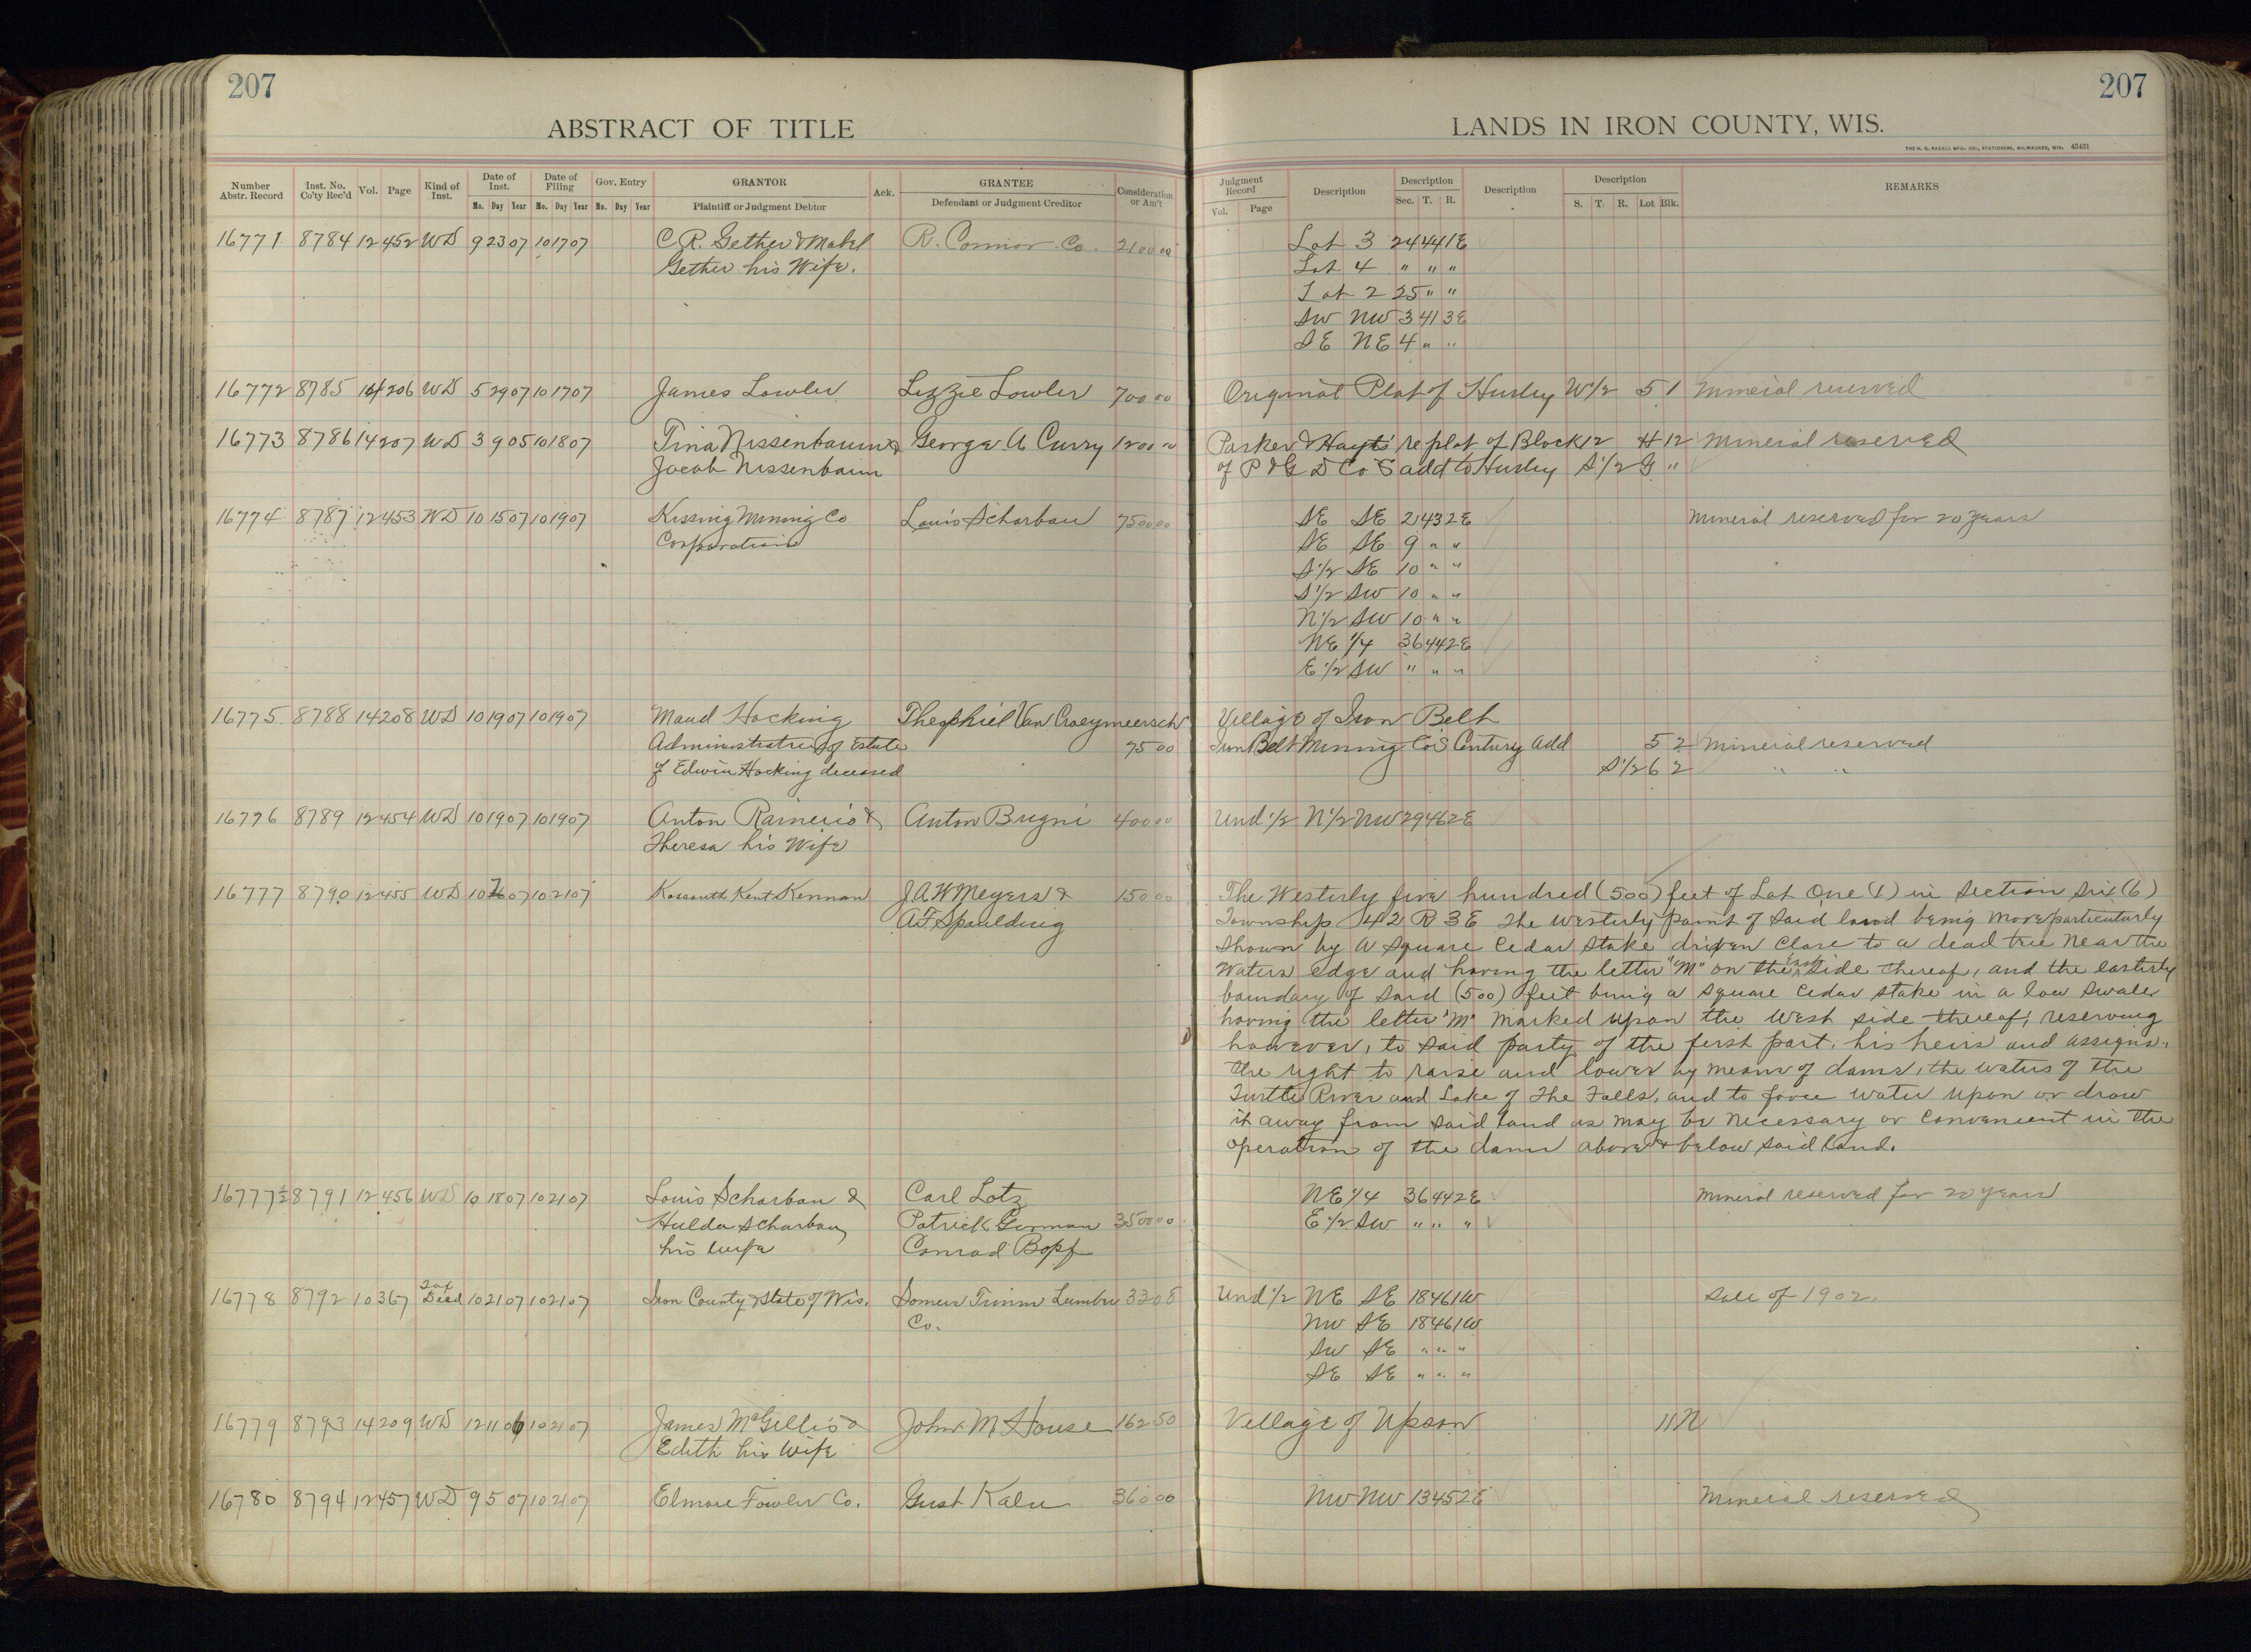 207
ABSTRACT OF TITLE
Number Abstr. Record Inst. No. Co'ty Rec'd Vol. Page Kind of Inst. Date of Inst. Mo. Day Year Date of Filing Mo. Day Year Gov. Entry Mo. Day Year GRANTOR Plaintiff or Judgment Debtor Ack. GRANTEE Defendant or Judgment Creditor Consideration or Am't
16771 8784 12 452 WD 9 23 07 10 17 07 C. R. Gether & Mabel R. Connor Co. 2100 00
Gether his Wife.
16772 8785 14 206 WD 5 29 07 10 17 07 James Lowler Lizzie Lowler 700 00
16773 8786 14 207 WD 3 9 05 10 18 07 Tina Nissenbaum & George A Curry 1200 00
Jacob Nissenbaum
16774 8787 12 453 WD 10 15 07 10 19 07 Kissing Mining Co Louis Scharbau 7500 00
Corporation
16775 8788 14 208 WD 10 19 07 10 19 07 Maud Hocking Theophiel Van Craeymeersch
Administratrix of Estate 75 00
of Edwin Hocking deceased
16776 8789 12 454 WD 10 19 07 10 19 07 Anton Rainerio & Anton Brugni 400 00
Theresa his Wife
16777 8790 12 455 WD 10 07 10 21 07 Kossouth Kent Kennan J. A W Meyers & 150 00
A. F. Spaulding
16777½ 8791 12 456 WD 10 18 07 10 21 07 Louis Scharbau & Carl Lotz
Hulda Scharbau Patrick Gorman 3500 00
his wife Conrad Bopf
16778 8792 10 367 Tax Deed 10 21 07 10 21 07 Iron County & State of Wis. Lumber 33 08
Co.
16779 8793 14 209 WD 12 11 06 10 21 07 James McGillis & John M House 162 50
Edith his Wife
16780 8794 12 457 WD 9 5 07 10 21 07 Elmore Fowler Co. Gust Kalu 360 00
207
LANDS IN IRON COUNTY, WIS.
THE H. G. RAZALL MFG. CO., STATIONERS, MILWAUKEE, WIS. 45431
Judgment Record Vol. Page Description Description Sec. T. R. Description Description S. T. R. Lot Blk. REMARKS
Lot 3 24 44 1E
Lot 4 " " "
Lot 2 25 " "
SW NW 3 41 3E
SE NE 4 " "
Original Plat of Hurley W½ 5 1 Mineral reserved
Parker & Hayts' replat of Block 12 H 12 Mineral reserved
of P & G D Co's add to Hurley S½ G "
SE SE 2 43 2E Mineral reserved for 20 years
SE SE 9 " "
S½ SE 10 " "
S½ SW 10 " "
N½ SW 10 " "
NE ¼ 36 44 2E
E½ SW " " "
Village of Iron Belt
Iron Belt Mining Co's Century Add 5 2 Mineral reserved
S½ 6 2 " "
Und ½ N½ NW 29 46 2E
The Westerly five hundred (500) feet of Lot One (1) in Section Six (6)
Township 42 R 3 E the Westerly point of said land being more particularly
shown by a square Cedar stake driven close to a dead tree near the
waters edge and having the letter "M" on the East side thereof, and the easterly
boundary of said (500) feet being a square Cedar stake in a low swale
having the letter "M" marked upon the West side thereof, reserving
however, to said party of the first part, his heirs and assigns,
the right to raise and lower by means of dams, the waters of the
Turtle River and Lake of The Falls, and to force water upon or draw
it away from said land as may be necessary or convenient in the
operation of the dams above & below said land.
NE ¼ 36 44 2E Mineral reserved for 20 years
E½ SW " " "
Und ½ NE SE 18 46 1W Sale of 1902.
NW SE 18 46 1W
SW SE " " "
SE SE " " "
Village of Upson 11 N
NW NW 13 45 2E Mineral reserved